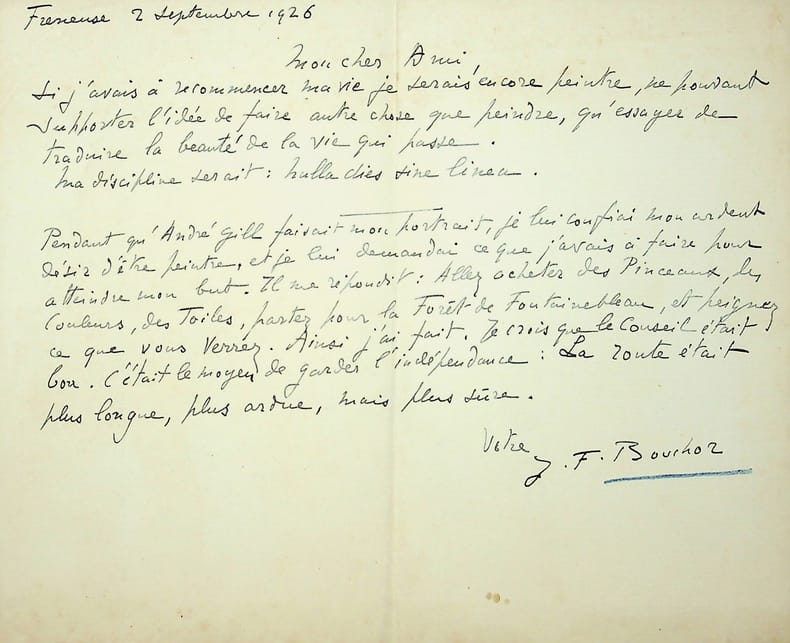 Freneuse 2 septembre 1926
Mon cher Ami,
Si j'avais à recommencer ma vie je serais encore peintre, ne pouvant
supporter l'idée de faire autre chose que peindre, qu'essayer de
traduire la beauté de la vie qui passe.
Ma discipline serait : nulla dies sine linea.
Pendant qu'André Gill faisait mon portrait, je lui confiai mon ardent
désir d'être peintre, et je lui demandai ce que j'avais à faire pour
atteindre mon but. Il me répondit : Allez acheter des Pinceaux, des
Couleurs, des Toiles, partez pour la Forêt de Fontainebleau, et peignez
ce que vous verrez. Ainsi j'ai fait. Je crois que le Conseil était
bon. C'était le moyen de garder l'indépendance : La route était
plus longue, plus ardue, mais plus sûre.
Votre
J. F. Bouchor